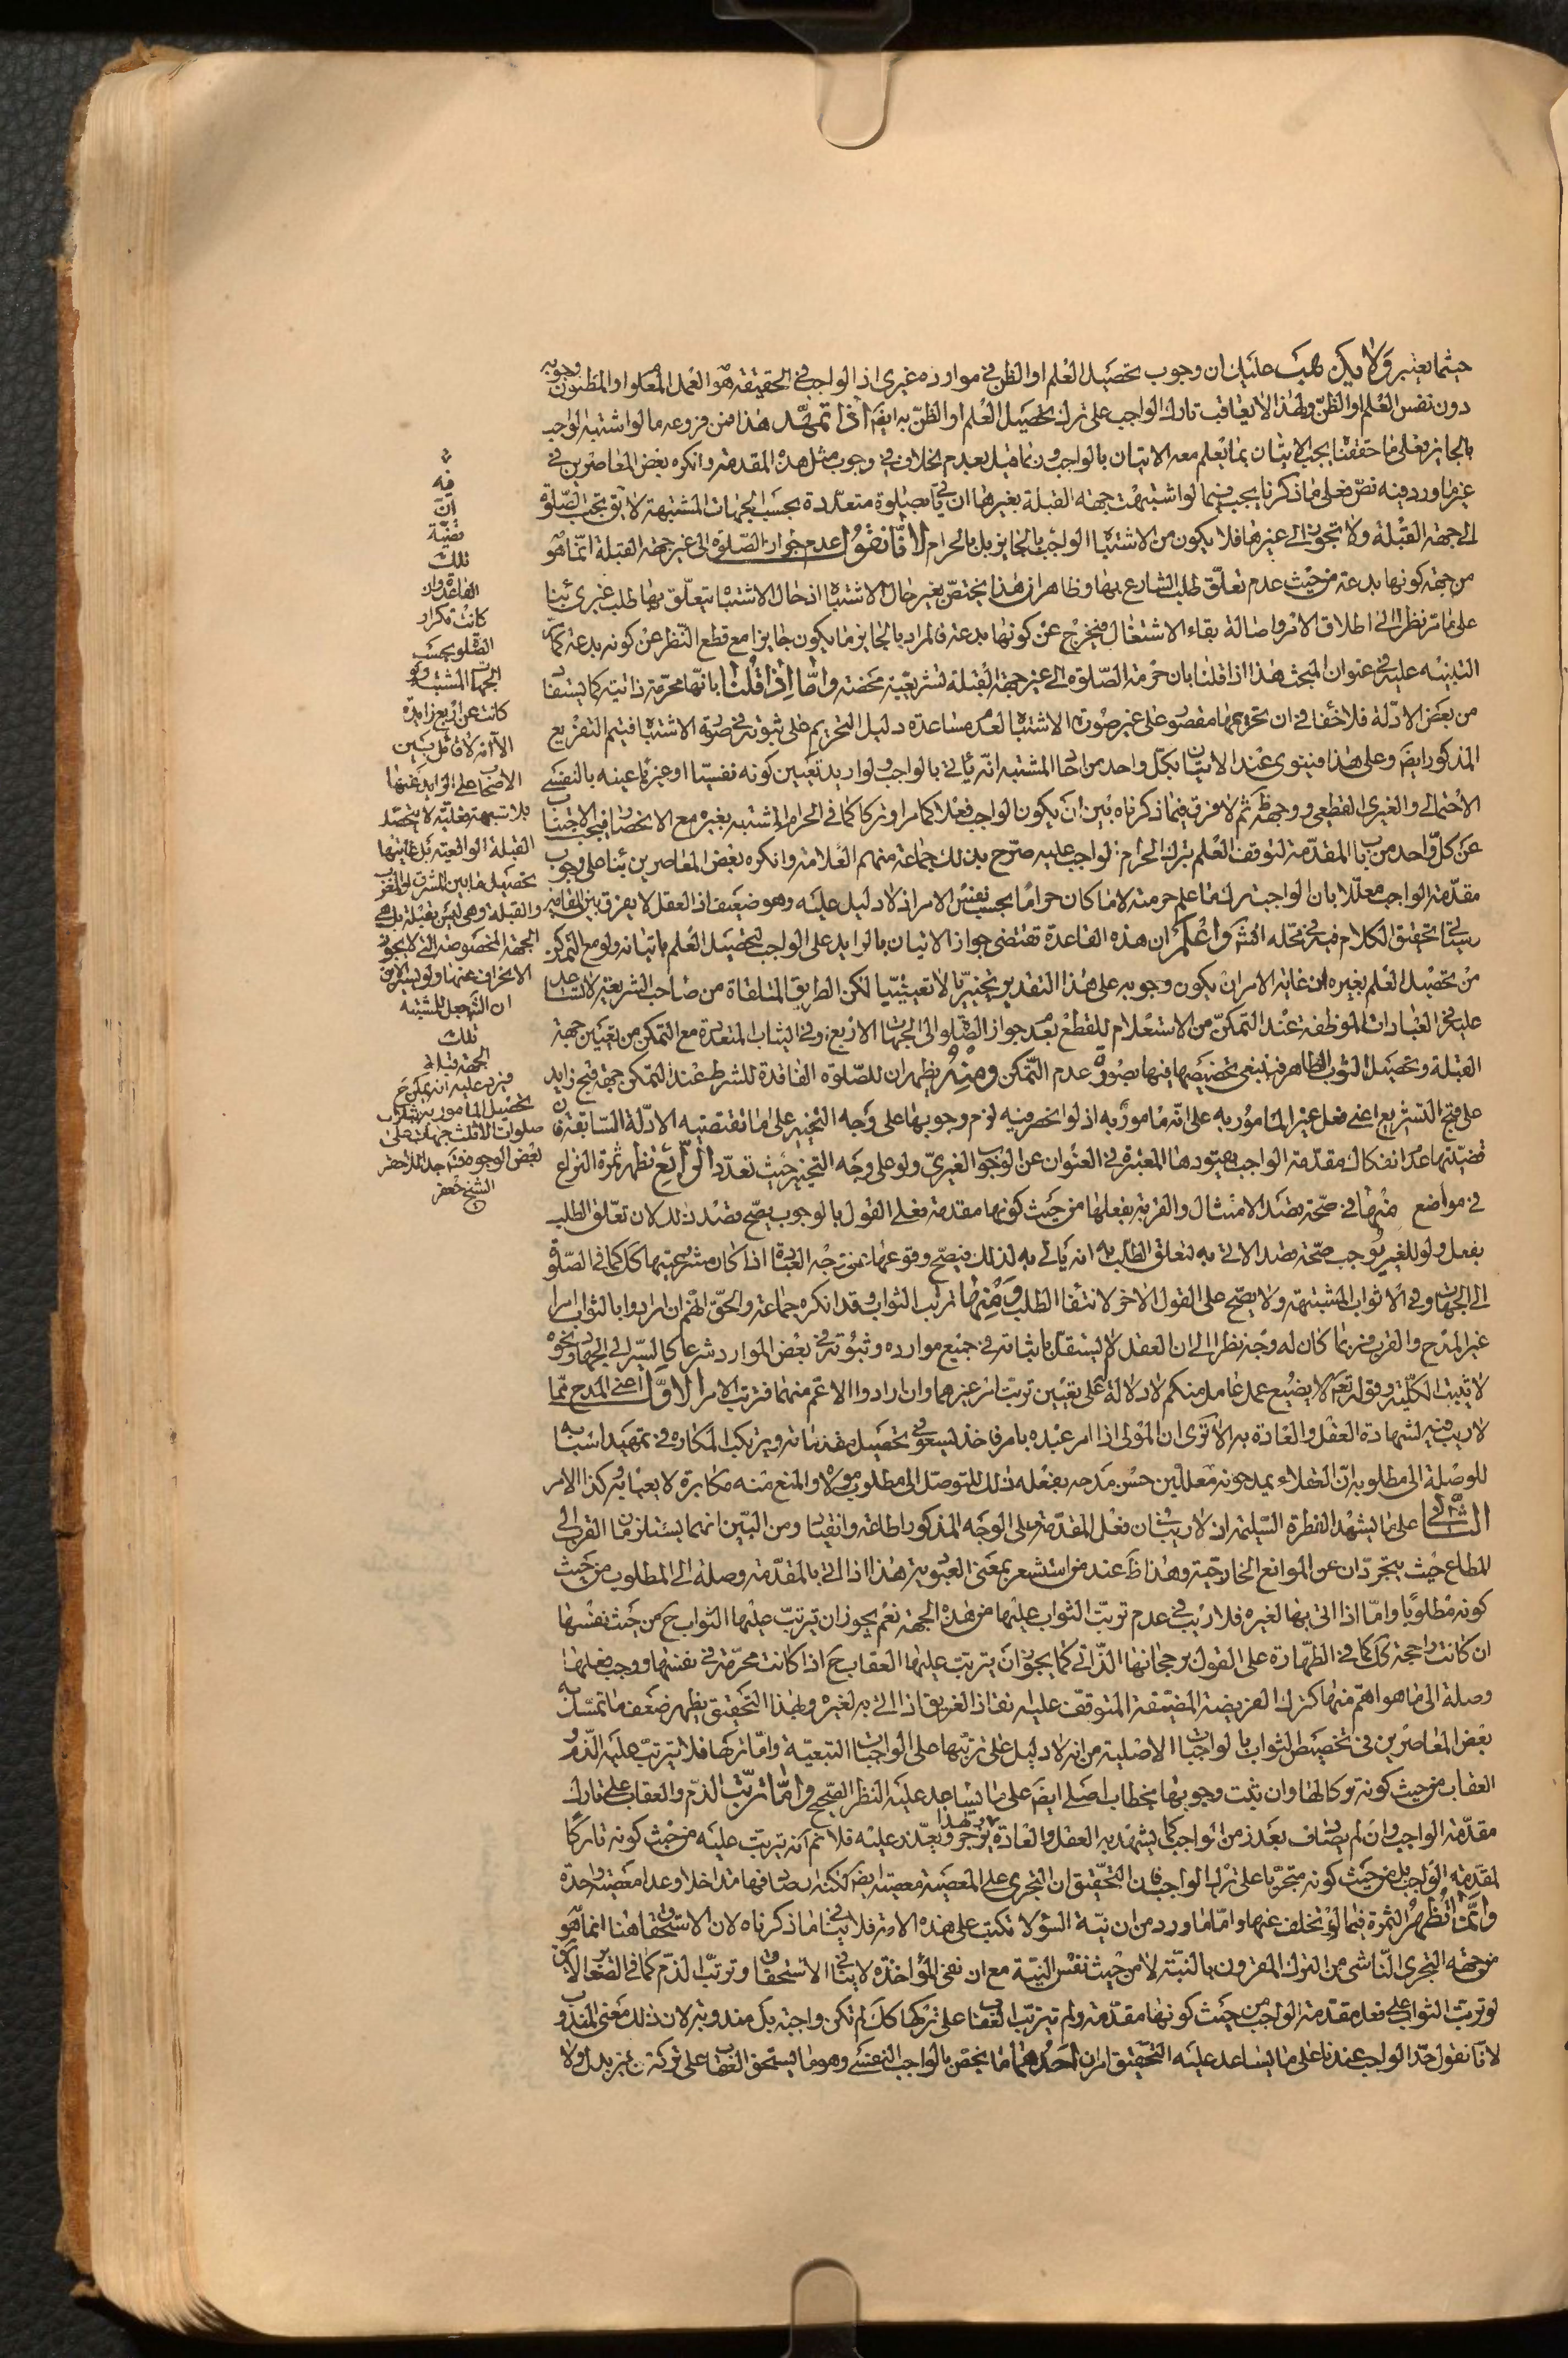 حيثما يعتبر ولا يكن عليك ان وجوب تحصيل العلم او الظن في موارده غيرى اذ الواجب في الحقيقة هو العمل المعلوم او المظنون وجوبه
دون نفس العلم او الظن ولهذا لا يعاقب تارك الواجب على ترك تحصيل العلم او الظن به ايضا اذا تمهد هذا فمن فروعه ما لو اشتبه الواجب
بالجايز فعلى ما حققنا يجب الاتيان بما يعلم معه الاتيان بالواجب وربما قيل بعدم الخلاف في وجوب مثل هذه المقدمة وانكره بعض المعاصرين في
غير ما ورد فيه نص فعلى ما ذكرنا يجب فيما لو اشتبهت جهة القبلة بغيرها ان ياتي بصلوة متعددة بحسب الجهات المشتبهة لا يق تجب الصلوة
الى جهة القبلة ولا تجوز الى غيرها فلا يكون من الاشتباه الواجب بالجايز بل بالحرام لانا نقول عدم جواز الصلوة الى غير جهة القبلة انما هو
من جهة كونها بدعة من حيث عدم تعلق طلب الشارع بها وظاهر ان هذا يختص بغير حال الاشتباه اذ حال الاشتباه يتعلق بها طلب غيرى بناء
على ما مر نظرا الى اطلاق الامر واصالة بقاء الاشتغال فيخرج عن كونها بدعة فالمراد بالجايز ما يكون جايزا مع قطع النظر عن كونه بدعة كما مر
التنبيه عليه في عنوان المبحث هذا اذا قلنا بان حرمة الصلوة الى غير جهة القبلة تشريعية محضة واما اذا قلنا بانها محرمة ذاتية كما يستفاد
من بعض الادلة فلا خفاء في ان تحريمها مقصور على غير صورة الاشتباه لعدم مساعدة دليل التحريم على ثبوته في صورة الاشتباه فيتم التفريع
المذكور ايضا وعلى هذا فينوى عند الاتيان بكل واحد من احاد المشتبه انه ياتي بالواجب ولو اريد تعيين كونه نفسيا او غيريا عينه بالنفسى
الاحتمالى والغيرى القطعى ووجهه ظ ثم لا فرق فيما ذكرناه بين ان يكون الواجب فعلا كما مر او تركا كما في الحرام المشتبه بغيره مع الانحصار فيجب الاجتناب
عن كل واحد من باب المقدمة لتوقف العلم بترك الحرام الواجب عليه صرح بذلك جماعة منهم العلامة وانكره بعض المعاصرين بناء على وجوب
مقدمة الواجب معللا بان الواجب ترك ما علم حرمته لا ما كان حراما بحسب نفس الامر اذ لا دليل عليه وهو ضعيف اذ العقل لا يفرق بين المقامين
وسياتي تحقيق الكلام فيه في محله انش واعلم ان هذه القاعدة تقتضى جواز الاتيان بالزايد على الواجب لتحصيل العلم باتيانه ولو مع التمكن
من تحصيل العلم بغيره اذ غاية الامر ان يكون وجوبه على هذا التقدير تخييريا لا تعيينيا لكن الطريق المتلقاة من صاحب الشريعة لا تساعد
عليه في العبادات الموظفة عند التمكن من الاستعلام للقطع بعدم جواز الصلوة الى الجهات الاربع وفي الثياب المتعددة مع التمكن من تعيين جهة
القبلة وتحصيل الثوب الطاهر فينبغى تخصيصها فيها بصورة عدم التمكن ومنه يظهر ان للصلوة الفاقدة للشرط عند التمكن جهة قبح زايد
على قبح التشريع اعنى فعل غير المامور به على انه مامور به اذ لو انحصر فيه لزم وجوبها على وجه التخيير على ما تقتضيه الادلة السابقة فان
قضيتها عدم انفكاك مقدمة الواجب بقيودها المعتبرة في العنوان عن الوجوب الغيرى ولو على وجه التخيير حيث تعدد الرابع تظهر ثمرة النزاع
في مواضع منها في صحة قصد الامتثال والقربة بفعلها من حيث كونها مقدمة فعلى القول بالوجوب يصح قصد ذلك لان تعلق الطلب
بفعل ولو للغير يوجب صحة قصد الاتي به لتعلق الطلب به انه ياتي به لذلك فيصح وقوعها من وجه العبادة اذا كان مشروعيتها كك كما في الصلوة
الى الجهات وفي الاثواب المشتبهة ولا يصح على القول الاخر لانتفاء الطلب ومنها ترتب الثواب وقد انكره جماعة والحق انهم ان ارادوا بالثواب امرا
غير المدح والقرب فربما كان له وجه نظرا الى ان العقل لا يستقل باثباته في جميع موارده وثبوته في بعض الموارد شرعا كالسير الى الجهاد ونحوه
لا تثبت الكلية وقوله تع لا يضيع عمل عامل منكم لا دلالة على تعيين ترتب امر غيرهما وان ارادوا الاعم منهما فترتب الامر الاول اعنى المدح مما
لا ريب فيه لشهادة العقل والعادة به الا ترى ان المولى اذا امر عبده بامر فاخذ يسعى في تحصيل مقدماته ويرتكب المكاره في تمهيد اسبابه
للوصلة الى مطلوبه ان العقلاء يمدحونه معللين حسن مدحه بفعله ذلك للتوصل الى مطلوب مولاه والمنع منه مكابرة لا يعبا به وكذا الامر
الثاني على ما يشهد به الفطرة السليمة اذ لا ريب في ان فعل المقدمة على الوجه المذكور اطاعة وانقياد ومن البين انهما يستلزمان القرب الى
المطاع حيث يتجردان عن الموانع الخارجية وهذا ظ عند من استشعر بمعنى العبودية هذا اذا اتى بالمقدمة وصلة الى المطلوب من حيث
كونه مطلوبا واما اذا اتى بها لغيره فلا ريب في عدم ترتب الثواب عليها من هذه الجهة نعم يجوز ان يترتب عليها الثواب ح من حيث نفسها
ان كانت راجحة كك كما في الطهارة على القول برجحانها الذاتي كما يجوز ان يترتب عليها العقاب ح اذا كانت محرمة في نفسها ووجب فعلها
وصلة الى ما هو اهم منها كترك الفريضة المضيقة المتوقف عليه نقاذ الغريق اذا اتى به لغيره وبهذا التحقيق يظهر ضعف ما تمسك به
بعض المعاصرين في تخصيص الثواب بالواجبات الاصلية من انه لا دليل على ترتبها على الواجبات التبعية واما تركها فلا يترتب عليه الذم و
العقاب من حيث كونه تركا لها وان ثبت وجوبها بخطاب اصلى ايضا على ما يساعد عليه النظر الصحيح واما ترتب الذم والعقاب على تارك
مقدمة الواجب وان لم يصادف بعد زمن الواجب كما يشهد به العقل والعادة ولهذا يزجر ويعذر عليه فلا نم انه ترتب عليه من حيث كونه تاركا
لمقدمة الواجب بل من حيث كونه متجريا على ترك الواجب فان التحقيق ان التجرى على المعصية معصية ايضا لكنه ان صادفها تداخلا وعدا معصية واحدة
وانما تظهر الثمرة فيما لو تخلف عنها واما ما ورد من ان نية السوء لا تكتب على هذه الامة فلا ينافي ما ذكرناه لان الاستحقاق هنا انما هو
من جهة التجرى الناشى من الترك المقرون بالنية لا من حيث نفس النية مع ان نفى المؤاخذة لا ينافي الاستحقاق وترتب الذم كما في الصغاير لا يق
لو ترتب الثواب على فعل مقدمة الواجب من حيث كونها مقدمة ولم يترتب العقاب على تركها كك لم تكن واجبة بل مندوبة لان ذلك معنى المندوب
لانا نقول حد الواجب عندنا على ما يساعد عليه التحقيق امران احدهما ما يختص بالواجب النفسى وهو ما يستحق العقاب على تركه من غير بدل ولا
فه
ان
قضية
تلك
القاعدة وان
كانت تكرار
الصلوة بحسب
الجهات المشتبهة ولو
كانت عن اربع زايدة
الا انه لا قائل بين
الاصحاب على الزايد عنها
بلا شبهة
القبلة الواقعية بل غايتها
تحصيل ما بين المشرق والمغرب
والقبلة وهى ليس بقبلة بل هى
الجهة المخصوصة التي لا يجوز
الانحراف عنها ولو
ان الشرع جعل المشتبه
تلك
الجهة قبلة
فيرد عليه انه يمكن ح
تحصيل المامور به بثلاث
صلوات الى ثلث جهات على
بعض الوجوه فتدبر جدا لاحقر
الشيخ جعفر